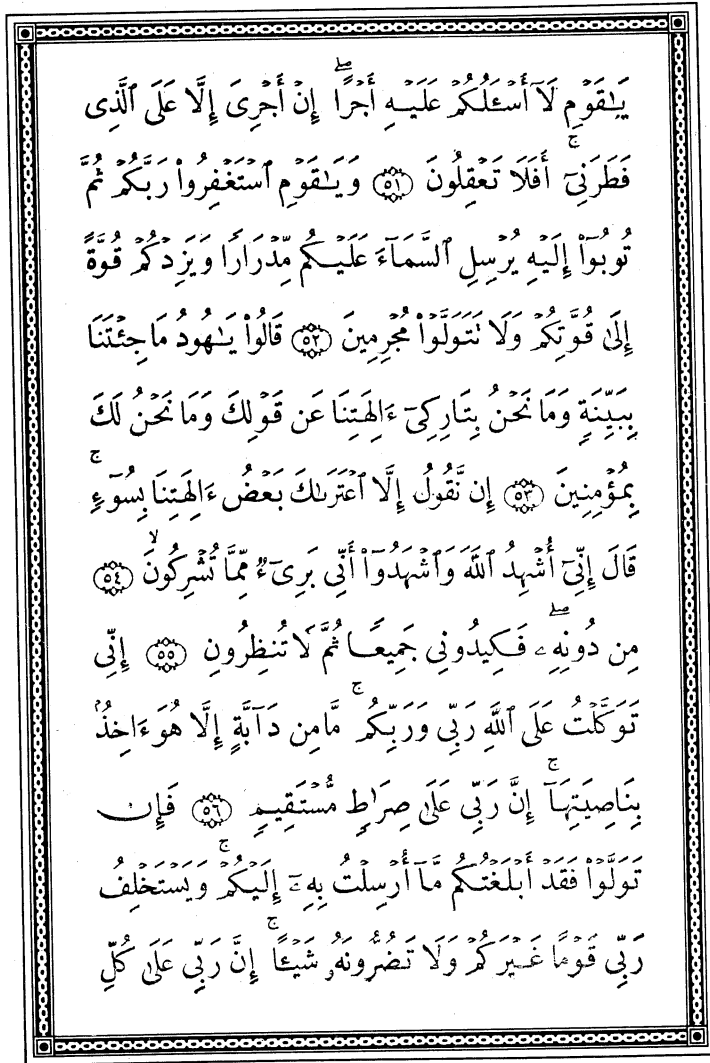 يَـٰقَوْمِ لَآ أَسْـَٔلُكُمْ عَلَيْهِ أَجْرًا ۖ إِنْ أَجْرِىَ إِلَّا عَلَى ٱلَّذِى
فَطَرَنِىٓ ۚ أَفَلَا تَعْقِلُونَ ٥١ وَيَـٰقَوْمِ ٱسْتَغْفِرُوا۟ رَبَّكُمْ ثُمَّ
تُوبُوٓا۟ إِلَيْهِ يُرْسِلِ ٱلسَّمَآءَ عَلَيْكُم مِّدْرَارًا وَيَزِدْكُمْ قُوَّةً
إِلَىٰ قُوَّتِكُمْ وَلَا تَتَوَلَّوْا۟ مُجْرِمِينَ ٥٢ قَالُوا۟ يَـٰهُودُ مَا جِئْتَنَا
بِبَيِّنَةٍ وَمَا نَحْنُ بِتَارِكِىٓ ءَالِهَتِنَا عَن قَوْلِكَ وَمَا نَحْنُ لَكَ
بِمُؤْمِنِينَ ٥٣ إِن نَّقُولُ إِلَّا ٱعْتَرَىٰكَ بَعْضُ ءَالِهَتِنَا بِسُوٓءٍ ۗ
قَالَ إِنِّىٓ أُشْهِدُ ٱللَّهَ وَٱشْهَدُوٓا۟ أَنِّى بَرِىٓءٌ مِّمَّا تُشْرِكُونَ ۙ ٥٤
مِن دُونِهِۦ ۖ فَكِيدُونِى جَمِيعًا ثُمَّ لَا تُنظِرُونِ ٥٥ إِنِّى
تَوَكَّلْتُ عَلَى ٱللَّهِ رَبِّى وَرَبِّكُم ۚ مَّا مِن دَآبَّةٍ إِلَّا هُوَ ءَاخِذٌۢ
بِنَاصِيَتِهَآ ۚ إِنَّ رَبِّى عَلَىٰ صِرَٰطٍ مُّسْتَقِيمٍ ٥٦ فَإِن
تَوَلَّوْا۟ فَقَدْ أَبْلَغْتُكُم مَّآ أُرْسِلْتُ بِهِۦٓ إِلَيْكُمْ ۚ وَيَسْتَخْلِفُ
رَبِّى قَوْمًا غَيْرَكُمْ وَلَا تَضُرُّونَهُۥ شَيْـًٔا ۚ إِنَّ رَبِّى عَلَىٰ كُلِّ